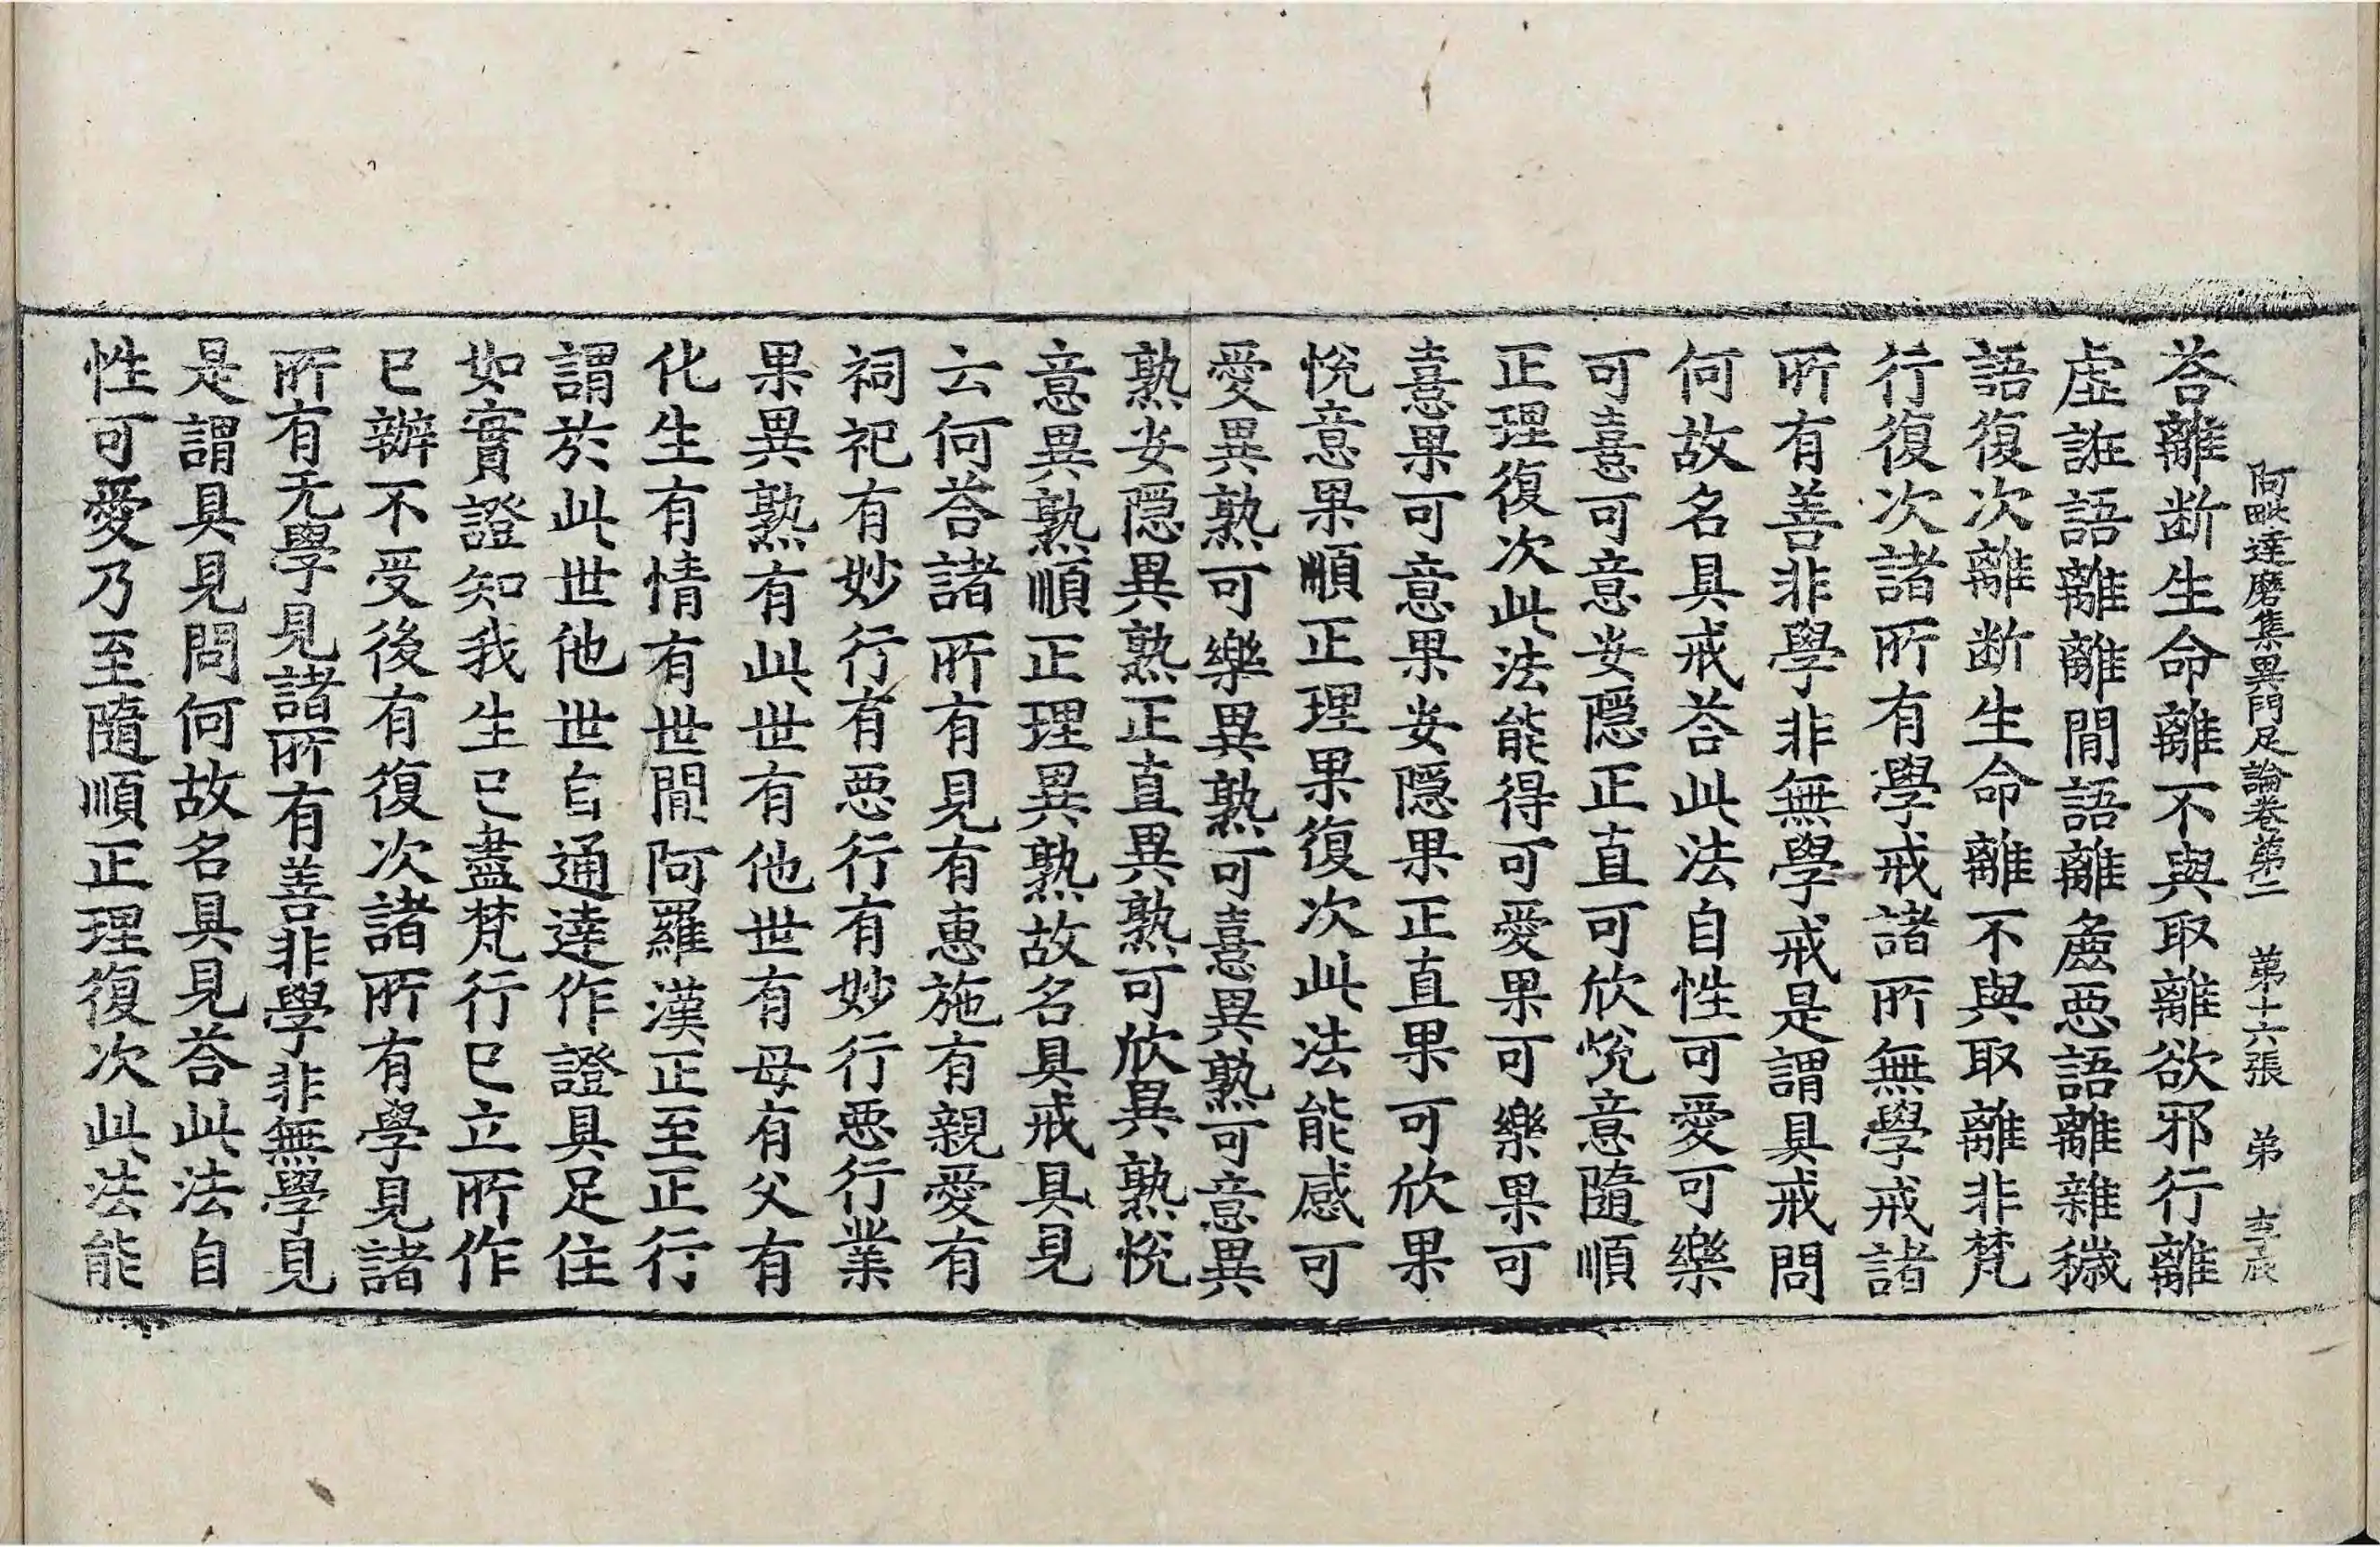 阿毗達磨集異門足論卷第二 第十六張 弟 李辰
荅離断生命離不與取離欲邪行離
虛誑語離離閒語離麁惡語離雜穢
語復次離断生命離不與取離非梵
行復次諸所有學戒諸所無學戒諸
所有善非學非無學戒是謂具戒問
何故名具戒荅此法自性可愛可樂
可憙可意安隱正直可欣悅意隨順
正理復次此法能得可愛果可樂果可
憙果可意果安隱果正直果可欣果
悅意果順正理果復次此法能感可
愛異熟可樂異熟可憙異熟可意異
熟安隱異熟正直異熟可欣異熟悅
意異熟順正理異熟故名具戒具見
云何荅諸所有見有惠施有親愛有
祠祀有妙行有惡行有妙行惡行業
果異熟有此世有他世有母有父有
化生有情有世閒阿羅漢正至正行
謂於此世他世自通達作證具足住
如實證知我生已盡梵行已立所作
已辦不受後有復次諸所有學見諸
所有无學見諸所有善非學非無學見
是謂具見問何故名具見荅此法自
性可愛乃至隨順正理復次此法能